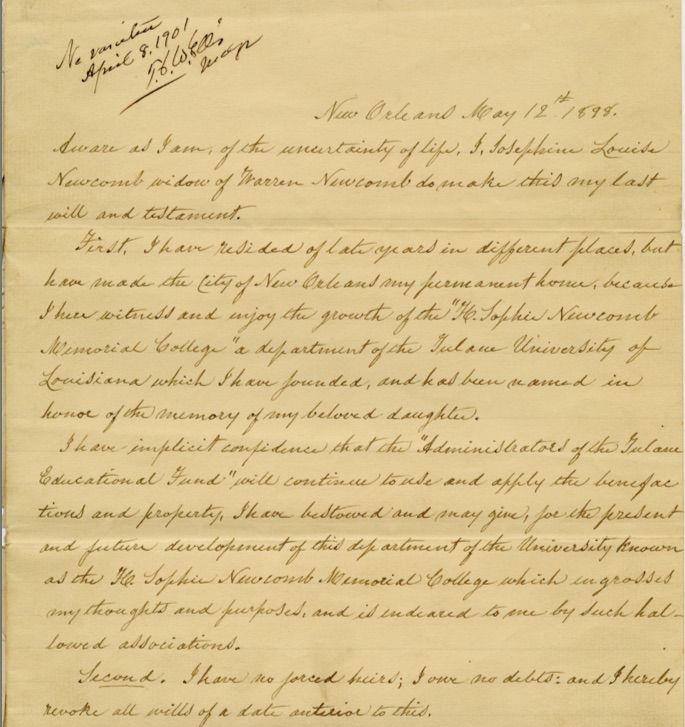 Ne varietur
April 8. 1901
Judge
New Orleans May 12th. 1898.
Aware as I am, of the uncertainty of life, I, Josephine Louise
Newcomb widow of Warren Newcomb do make this my last
will and testament.
First. I have resided of late years in different places, but
have made the City of New Orleans my permanent home, because
I here witness and enjoy the growth of the "H. Sophie Newcomb
Memorial College" a department of the Tulane University of
Louisiana which I have founded, and has been named in
honor of the memory of my beloved daughter.
I have implicit confidence that the "Administrators of the Tulane
Educational Fund" will continue to use and apply the benefac
tions and property, I have bestowed and may give, for the present
and future development of this department of the University known
as the H. Sophie Newcomb Memorial College which engrosses
my thoughts and purposes, and is endeared to me by such hal-
lowed associations.
Second. I have no forced heirs; I owe no debts: and I hereby
revoke all wills of a date anterior to this.